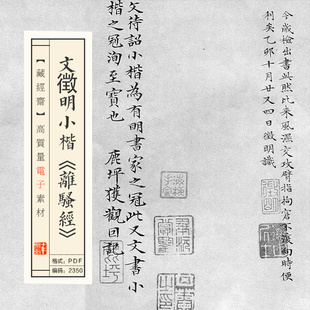 文徵明小楷《離騷經》
【藏經齋】高質量電子素材
格式：PDF
编码：2350
今歲檢出書此然比來風濕文攻臂指拘窘不復向時便
利矣乙卯十月廿又四日徵明識
文待詔小楷為有明書家之冠此又文書小
楷之冠洵至寶也 鹿坪獲觀回記